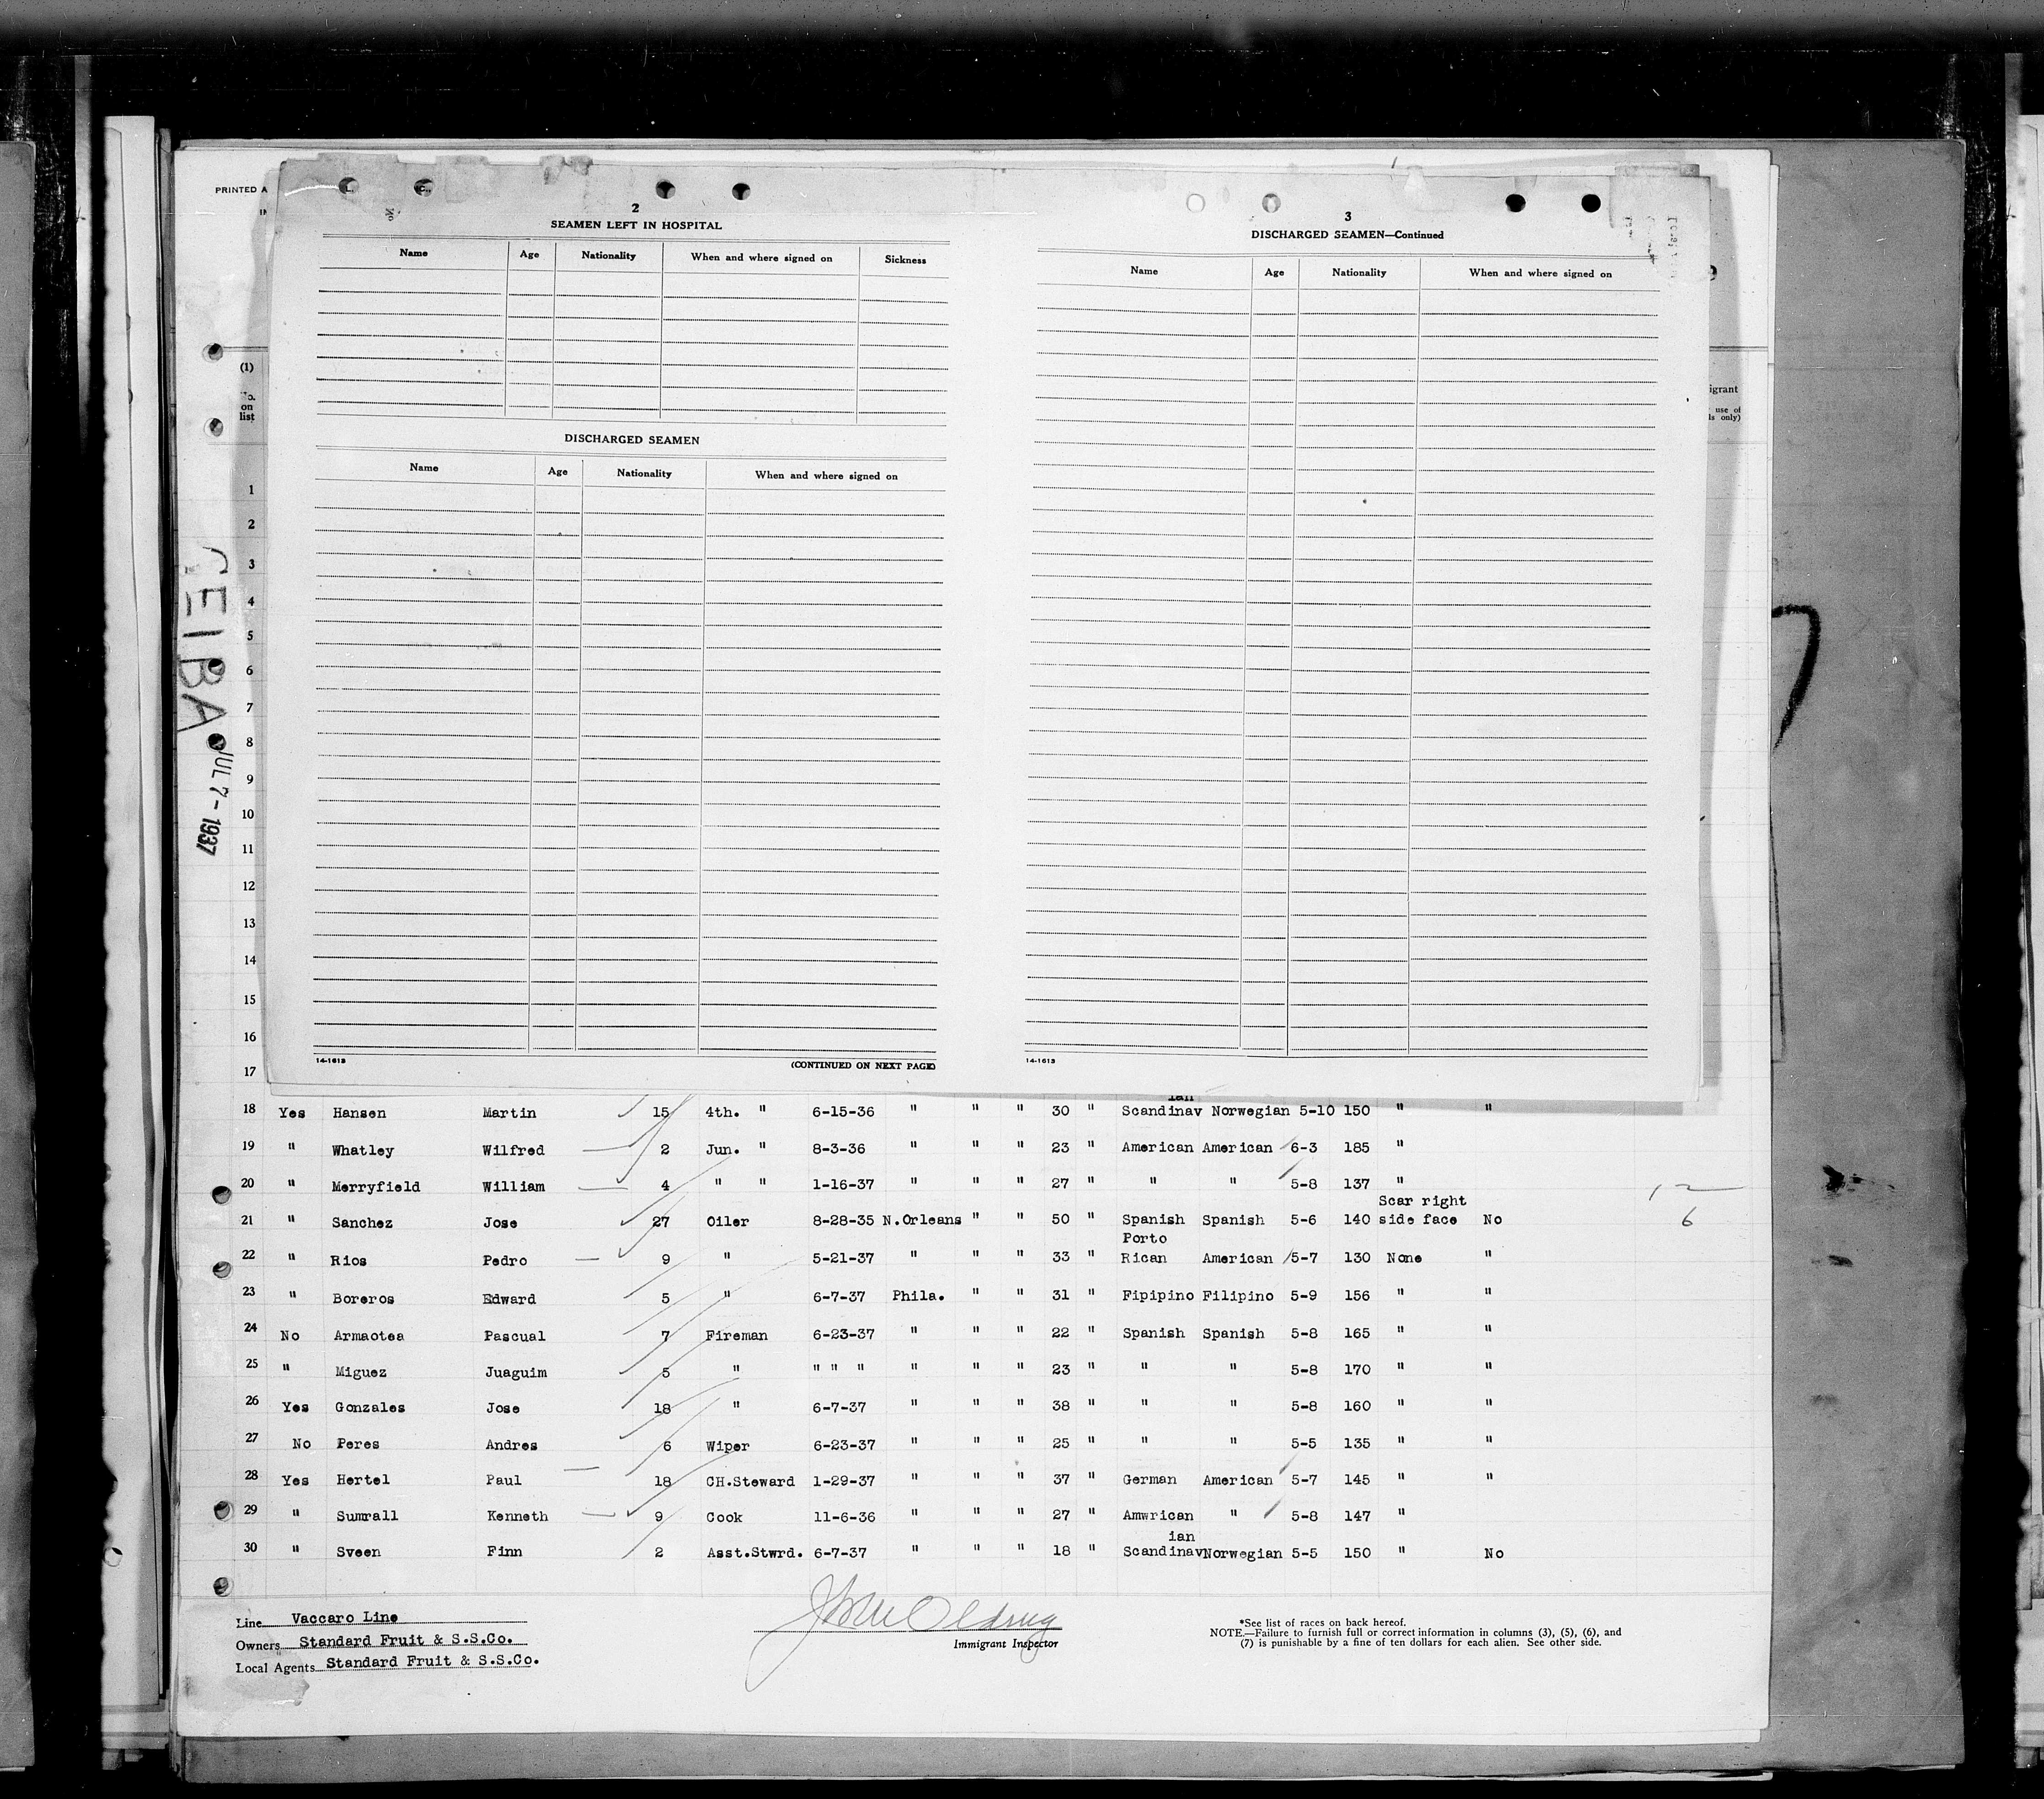 PRINTED A
2
SEAMEN LEFT IN HOSPITAL
Name Age Nationality When and where signed on Sickness
DISCHARGED SEAMEN
Name Age Nationality When and where signed on
14-1613
(CONTINUED ON NEXT PAGE)
3
DISCHARGED SEAMEN—Continued
Name Age Nationality When and where signed on
14-1613
igrant
use of
ls only)
(1)
No.
on
list
1
2
3
4
5
6
7
8
9
10
11
12
13
14
15
16
17
CEIBA
JUL 7 - 1937
7
ian
18 Yes Hansen Martin 15 4th. " 6-15-36 " " " 30 " Scandinav Norwegian 5-10 150 " "
19 " Whatley Wilfred 2 Jun. " 8-3-36 " " " 23 " American American 6-3 185 "
20 " Merryfield William 4 " " 1-16-37 " " " 27 " " " 5-8 137 "
Scar right
21 " Sanchez Jose 27 Oiler 8-28-35 N.Orleans " " 50 " Spanish Spanish 5-6 140 side face No
12
6
Porto
22 " Rios Pedro 9 " 5-21-37 " " " 33 " Rican American 5-7 130 None "
23 " Boreros Edward 5 " 6-7-37 Phila. " " 31 " Fipipino Filipino 5-9 156 " "
24 No Armaotea Pascual 7 Fireman 6-23-37 " " " 22 " Spanish Spanish 5-8 165 " "
25 " Miguez Juaguim 5 " " " " " " " 23 " " " 5-8 170 " "
26 Yes Gonzales Jose 18 " 6-7-37 " " " 38 " " " 5-8 160 " "
27 No Peres Andres 6 Wiper 6-23-37 " " " 25 " " " 5-5 135 " "
28 Yes Hertel Paul 18 CH.Steward 1-29-37 " " " 37 " German American 5-7 145 " "
29 " Sumrall Kenneth 9 Cook 11-6-36 " " " 27 " Amwrican " 5-8 147 "
ian
30 " Sveen Finn 2 Asst.Stwrd. 6-7-37 " " " 18 " Scandinav Norwegian 5-5 150 " No
Line Vaccaro Line
Owners Standard Fruit & S.S.Co.
Local Agents Standard Fruit & S.S.Co.
Immigrant Inspector
*See list of races on back hereof.
NOTE.—Failure to furnish full or correct information in columns (3), (5), (6), and
(7) is punishable by a fine of ten dollars for each alien. See other side.